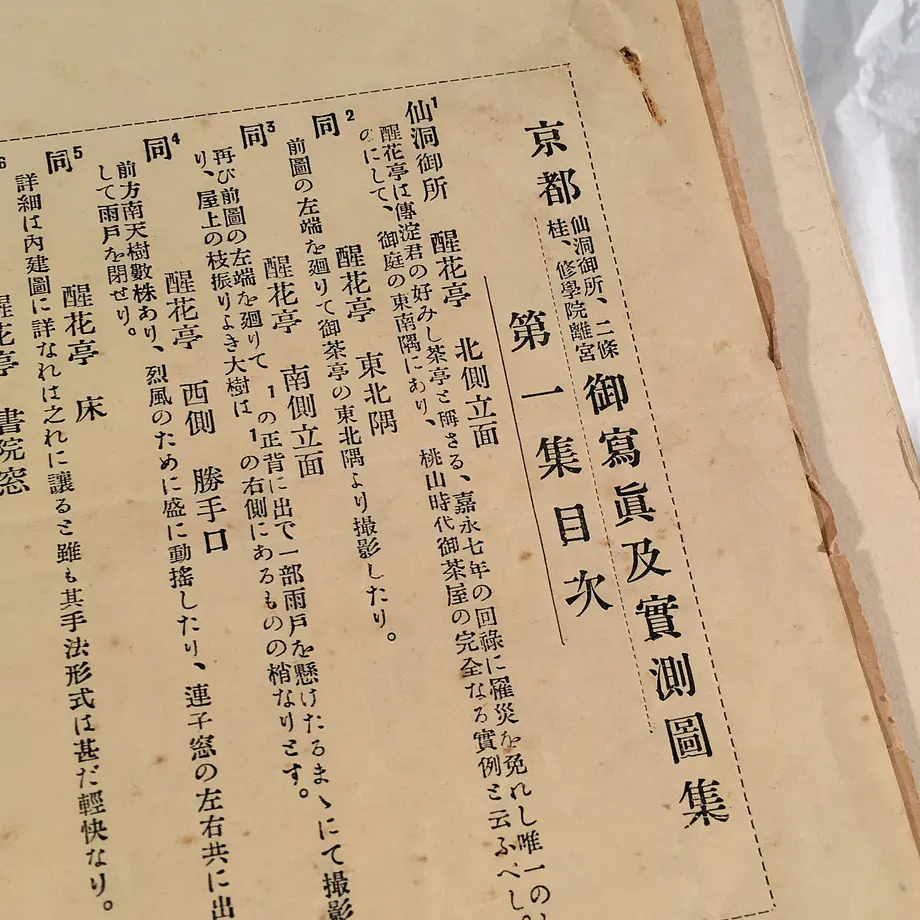 京都 仙洞御所、二條 桂、修學院離宮 御寫眞及實測圖集
第一集目次
1 仙洞御所 醒花亭 北側立面
醒花亭は傳淀君の好みし茶亭と稱さる、嘉永七年の回祿に罹災を免れし唯一の
のにして、御庭の東南隅にあり、桃山時代御茶屋の完全なる實例と云ふべし。
2 同 醒花亭 東北隅
前圖の左端を廻りて御茶亭の東北隅より撮影したり。
3 同 醒花亭 南側立面
再び前圖の左端を廻りて 1の正背に出で一部雨戸を懸けたるまゝにて撮影
り、屋上の枝振りよき大樹は 1の右側にあるものの梢なりとす。
4 同 醒花亭 西側 勝手口
前方南天樹數株あり、烈風のために盛に動搖したり、連子窓の左右共に出
して雨戸を閉せり。
5 同 醒花亭 床
詳細は內建圖に詳なれは之れに讓ると雖も其手法形式は甚だ輕快なり。
6 醒花亭 書院窓